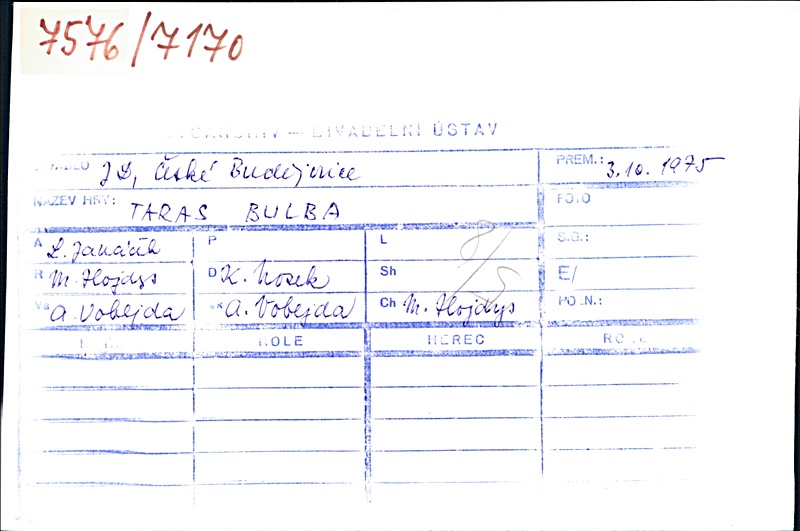 7576/7170
DIVADELNÍ ÚSTAV
JD, České Budějovice PREM.: 3.10.1975
NÁZEV HRY: TARAS BULBA FOTO
A L. Janáček P L S.G.:
R M. Hojdys D K. Nosek Sh E/
Vs A. Vobejda vk A. Vobejda Ch M. Hojdys PO.N.:
8/5
ROLE HEREC